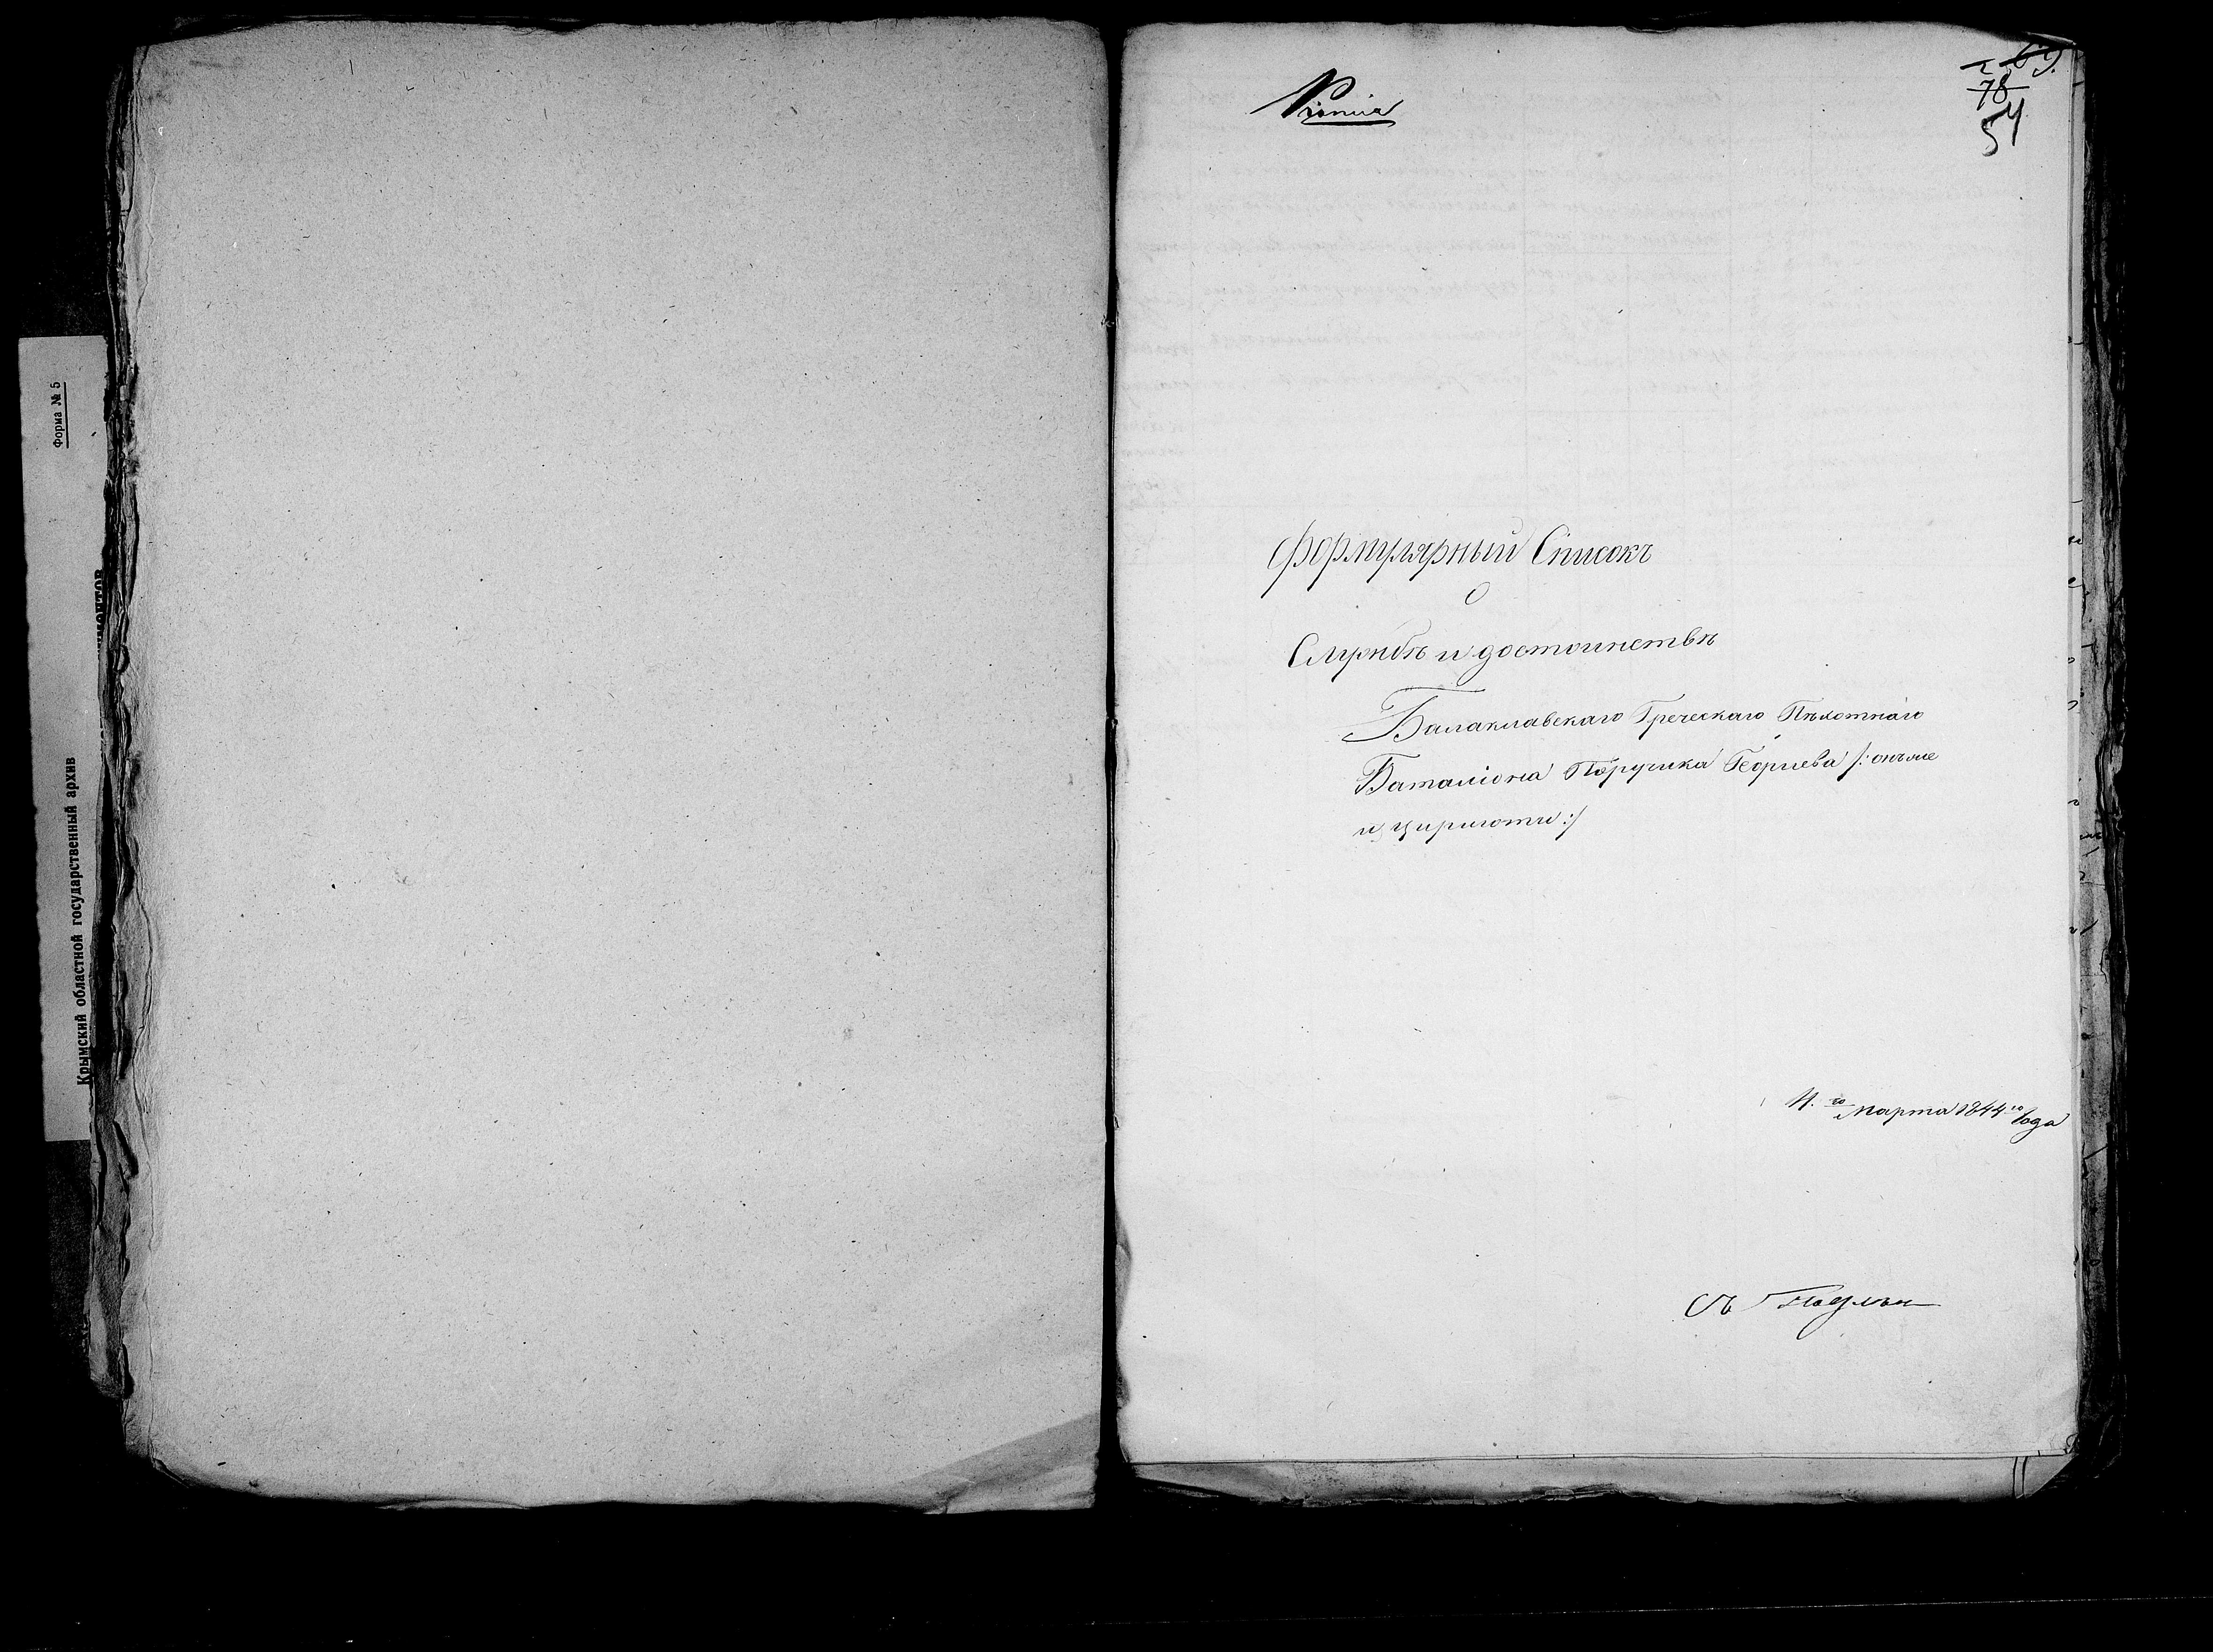 Форма № 5
Крымский областной государственный архив
Копия
78
54
Формулярный Списокъ
О
Службѣ и достоинствѣ
Балаклавскаго Греческаго Пѣхотнаго
Баталіона Поручика Георгіева /: онъ же
и Цириготи :/
4. го Марта 1844 го Года